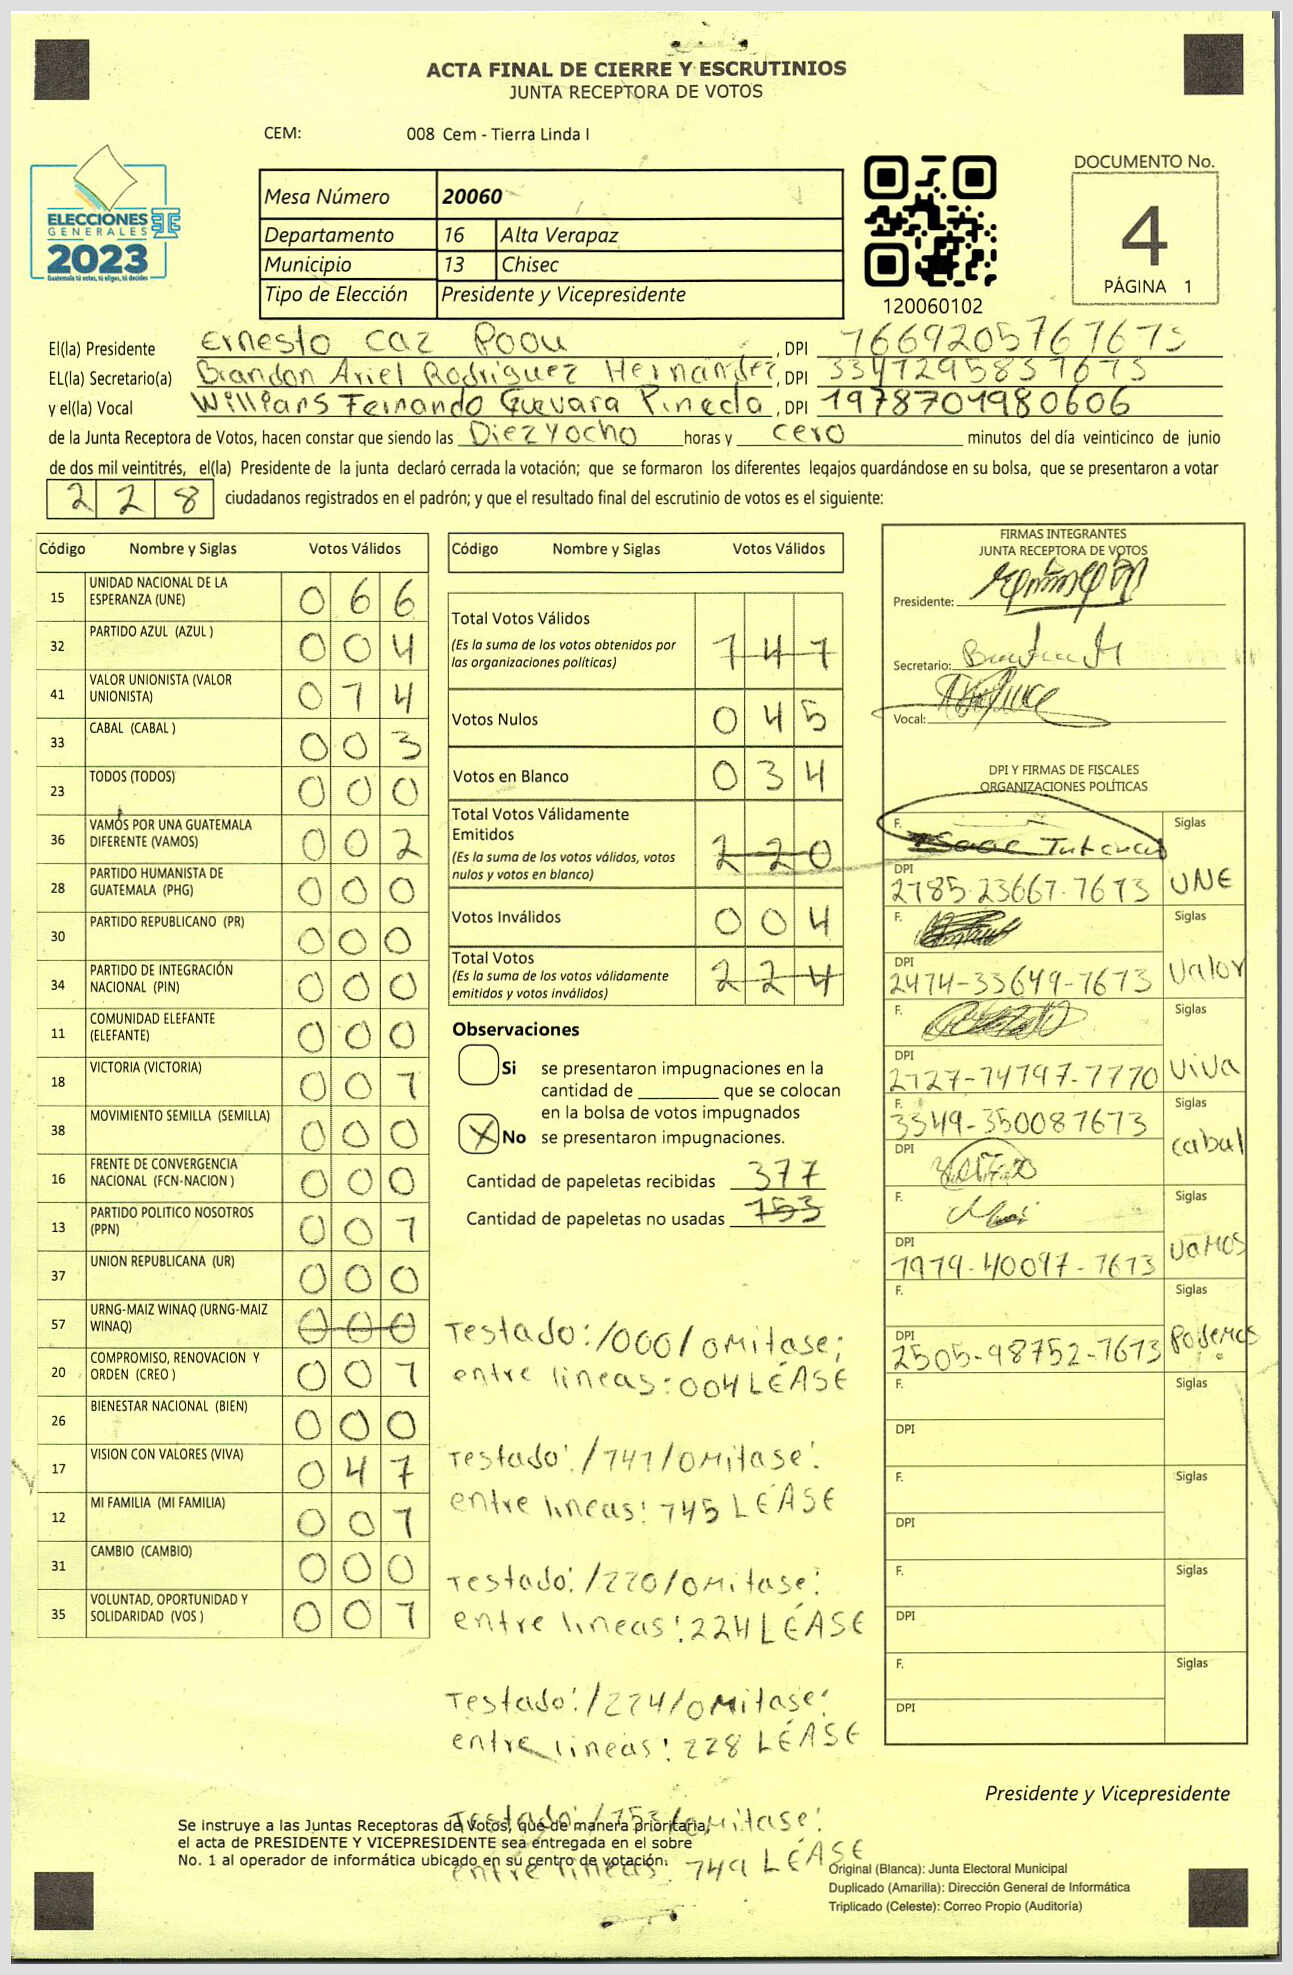 ACTA FINAL DE CIERRE Y ESCRUTINIOS
JUNTA RECEPTORA DE VOTOS
CEM: 008 Cem - Tierra Linda I
ELECCIONES
GENERALES
2023
Guatemala tú votas, tú eliges, tú decides
Mesa Número 20060
Departamento 16 Alta Verapaz
Municipio 13 Chisec
Tipo de Elección Presidente y Vicepresidente
120060102
DOCUMENTO No.
4
PÁGINA 1
El(la) Presidente Ernesto Caz Poou , DPI 1669205761613
EL(la) Secretario(a) Brandon Ariel Rodriguez Hernández, DPI 3347295851613
y el(la) Vocal Willians Fernando Guevara Pineda , DPI 1978701980606
de la Junta Receptora de Votos, hacen constar que siendo las Diez y ocho horas y cero minutos del día veinticinco de junio
de dos mil veintitrés, el(la) Presidente de la junta declaró cerrada la votación; que se formaron los diferentes legajos quardándose en su bolsa, que se presentaron a votar
228 ciudadanos registrados en el padrón; y que el resultado final del escrutinio de votos es el siguiente:
Código Nombre y Siglas Votos Válidos
15 UNIDAD NACIONAL DE LA ESPERANZA (UNE) 066
32 PARTIDO AZUL (AZUL ) 004
41 VALOR UNIONISTA (VALOR UNIONISTA) 014
33 CABAL (CABAL ) 003
23 TODOS (TODOS) 000
36 VAMOS POR UNA GUATEMALA DIFERENTE (VAMOS) 002
28 PARTIDO HUMANISTA DE GUATEMALA (PHG) 000
30 PARTIDO REPUBLICANO (PR) 000
34 PARTIDO DE INTEGRACIÓN NACIONAL (PIN) 000
11 COMUNIDAD ELEFANTE (ELEFANTE) 000
18 VICTORIA (VICTORIA) 001
38 MOVIMIENTO SEMILLA (SEMILLA) 000
16 FRENTE DE CONVERGENCIA NACIONAL (FCN-NACION ) 000
13 PARTIDO POLITICO NOSOTROS (PPN) 001
37 UNION REPUBLICANA (UR) 000
57 URNG-MAIZ WINAQ (URNG-MAIZ WINAQ) 000
20 COMPROMISO, RENOVACION Y ORDEN (CREO ) 001
26 BIENESTAR NACIONAL (BIEN) 000
17 VISION CON VALORES (VIVA) 047
12 MI FAMILIA (MI FAMILIA) 001
31 CAMBIO (CAMBIO) 000
35 VOLUNTAD, OPORTUNIDAD Y SOLIDARIDAD (VOS ) 001
Código Nombre y Siglas Votos Válidos
Total Votos Válidos
(Es la suma de los votos obtenidos por
las organizaciones políticas) 141
Votos Nulos 045
Votos en Blanco 034
Total Votos Válidamente
Emitidos
(Es la suma de los votos válidos, votos
nulos y votos en blanco) 220
Votos Inválidos 004
Total Votos
(Es la suma de los votos válidamente
emitidos y votos inválidos) 224
Observaciones
Si se presentaron impugnaciones en la
cantidad de ________ que se colocan
en la bolsa de votos impugnados
X No se presentaron impugnaciones.
Cantidad de papeletas recibidas 377
Cantidad de papeletas no usadas 153
Testado: /000/ OMITASE;
entre lineas: 004 LÉASE
Testado: /141/ OMITASE:
entre lineas: 145 LÉASE
Testado: /220/ OMITASE:
entre lineas: 224 LÉASE
Testado: /224/ OMITASE:
entre lineas: 228 LÉASE
Testado: /153/ OMITASE:
entre lineas: 149 LÉASE
FIRMAS INTEGRANTES
JUNTA RECEPTORA DE VOTOS
Presidente:
Secretario:
Vocal:
DPI Y FIRMAS DE FISCALES
ORGANIZACIONES POLÍTICAS
F. Siglas
DPI 2185-23667-1613 UNE
F. Siglas
DPI 2474-33649-1613 Valor
F. Siglas
DPI 2127-14797-1710 VIVA
F. 3349-350081613 Siglas
DPI cabal
F. Siglas
DPI 1979-40097-1613 VAMOS
F. Siglas
DPI 2505-98752-1613 Podemos
F. Siglas
DPI
F. Siglas
DPI
F. Siglas
DPI
F. Siglas
DPI
Presidente y Vicepresidente
Se instruye a las Juntas Receptoras de Votos, que de manera prioritaria,
el acta de PRESIDENTE Y VICEPRESIDENTE sea entregada en el sobre
No. 1 al operador de informática ubicado en su centro de votación.
Original (Blanca): Junta Electoral Municipal
Duplicado (Amarilla): Dirección General de Informática
Triplicado (Celeste): Correo Propio (Auditoría)